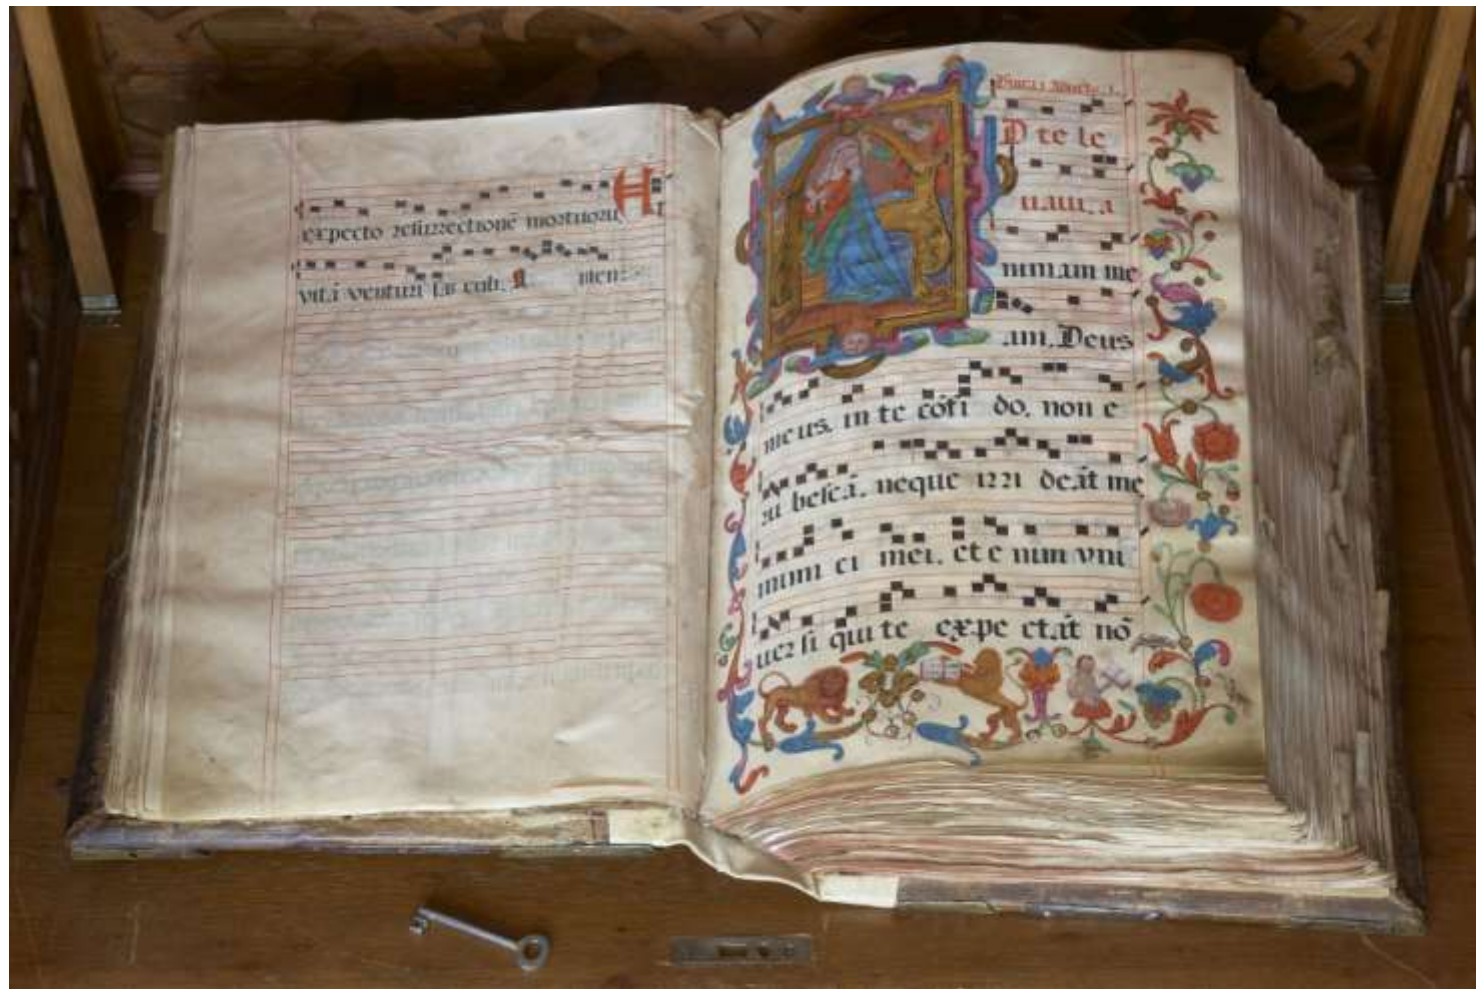 expecto resurrectionē mortuorū Et
vitā venturi sæ culi. A men:
D te le
uaui. a
nimam me
am. Deus
meus. in te cōfi do. non e
ru bescā. neque irri deāt me
inimi ci mei. et e nim vni
uer si qui te expe ctāt nō